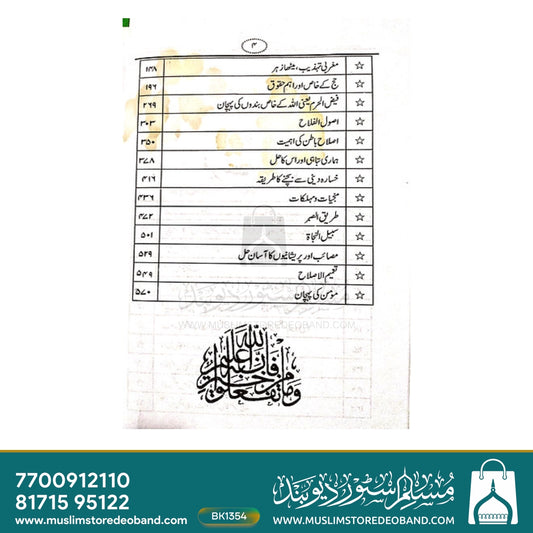 ۴
☆ مغربی تہذیب، میٹھا زہر ۱۴۸
☆ حج کے خاص اور اہم حقوق ۱۹۶
☆ فیض الحرم یعنی اللہ کے خاص بندوں کی پہچان ۲۶۹
☆ اصول الفلاح ۳۰۳
☆ اصلاح باطن کی اہمیت ۳۵۰
☆ ہماری تباہی اور اس کا حل ۳۷۸
☆ خسارہ دینی سے بچنے کا طریقہ ۴۱۶
☆ منجیات و مہلکات ۴۳۶
☆ طریق الصبر ۴۷۲
☆ سبیل النجاۃ ۵۰۱
☆ مصائب اور پریشانیوں کا آسان حل ۵۲۹
☆ تعمیم الاصلاح ۵۴۹
☆ مومن کی پہچان ۵۷۰
WWW.MUSLIMSTOREDEOBAND.COM
وما تفعلوا من خير فإن الله به عليم
7700912110
81715 95122
www.muslimstoredeoband.com
BK1354
مسلم اسٹور دیوبند
WWW.MUSLIMSTOREDEOBAND.COM